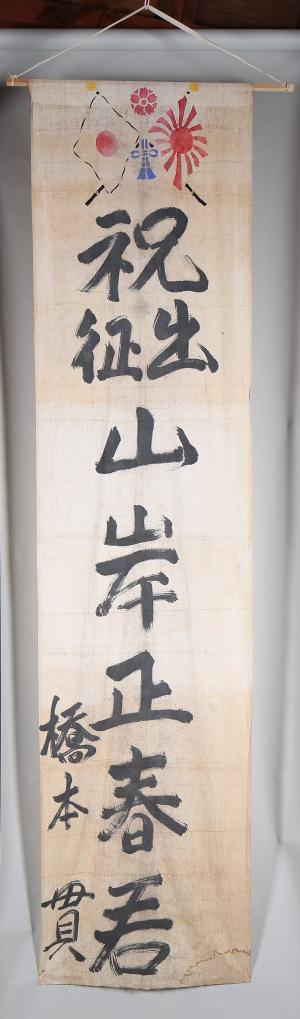 祝
出征
山岸正春君
橋本貫